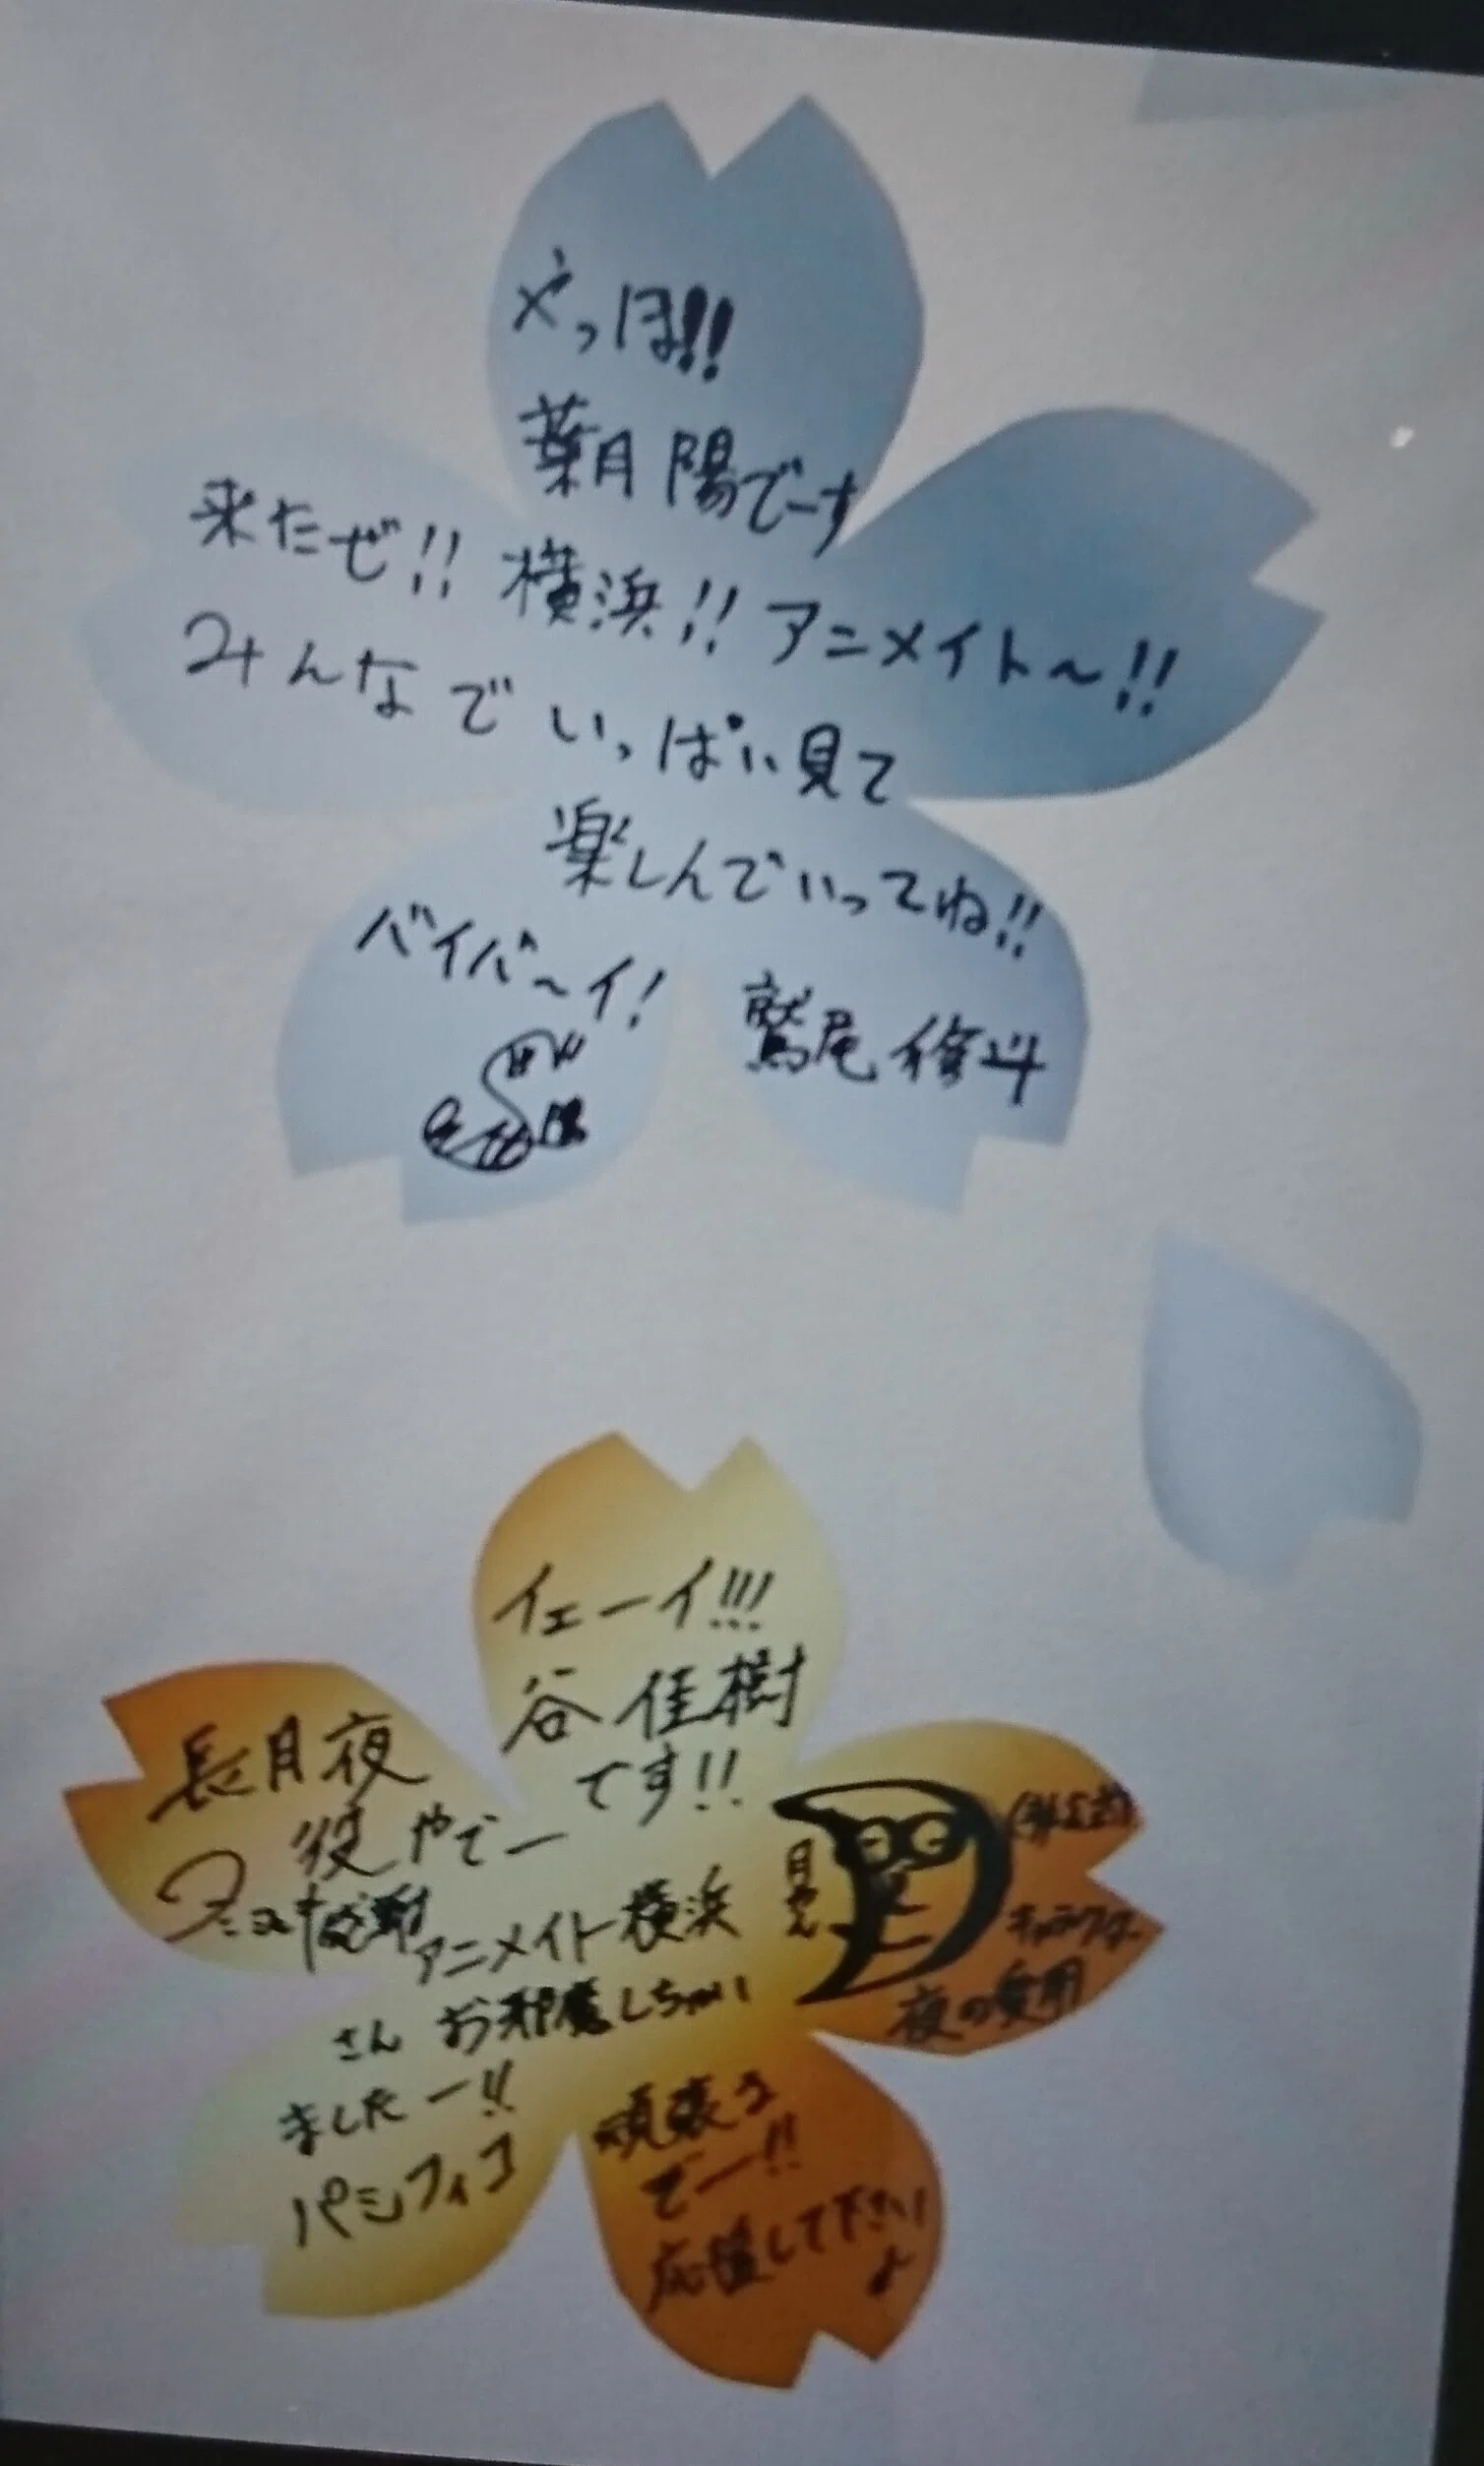 やっほ!!
葉月陽でーす
来たぜ!! 横浜!! アニメイト〜!!
みんなでいっぱい見て
楽しんでいってね!!
バイバ〜イ!
鷲尾修斗
イェーイ!!!
谷佳樹
です!!
長月夜
役やでー
感謝
アニメイト横浜
さんお邪魔しちゃい
ましたー!!
パシフィコ
頑張る
でー!!
応援して下さい
よ
月やん
キャラクター
夜の愛用